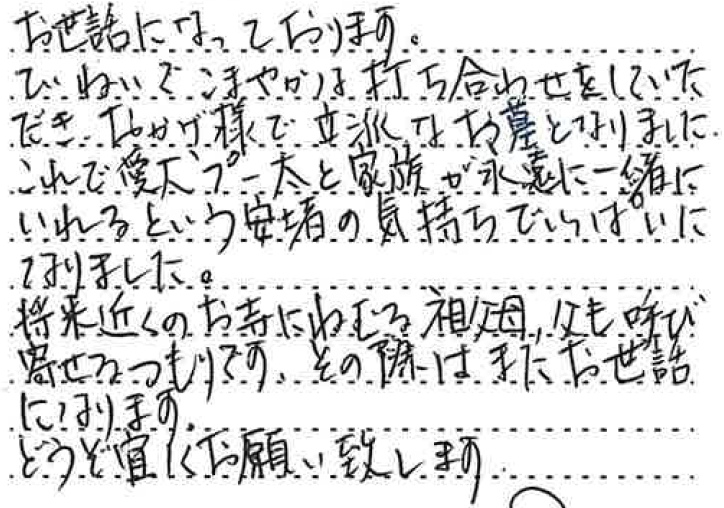 お世話になっております。
ていねいでこまやかな打ち合わせをしていた
だき、おかげ様で立派なお墓となりました。
これで愛犬プー太と家族が永遠に一緒に
いれるという安堵の気持ちでいっぱいに
なりました。
将来近くのお寺にねむる祖父母、父も呼び
寄せるつもりです、その際はまたお世話
になります。
どうぞ宜しくお願い致します